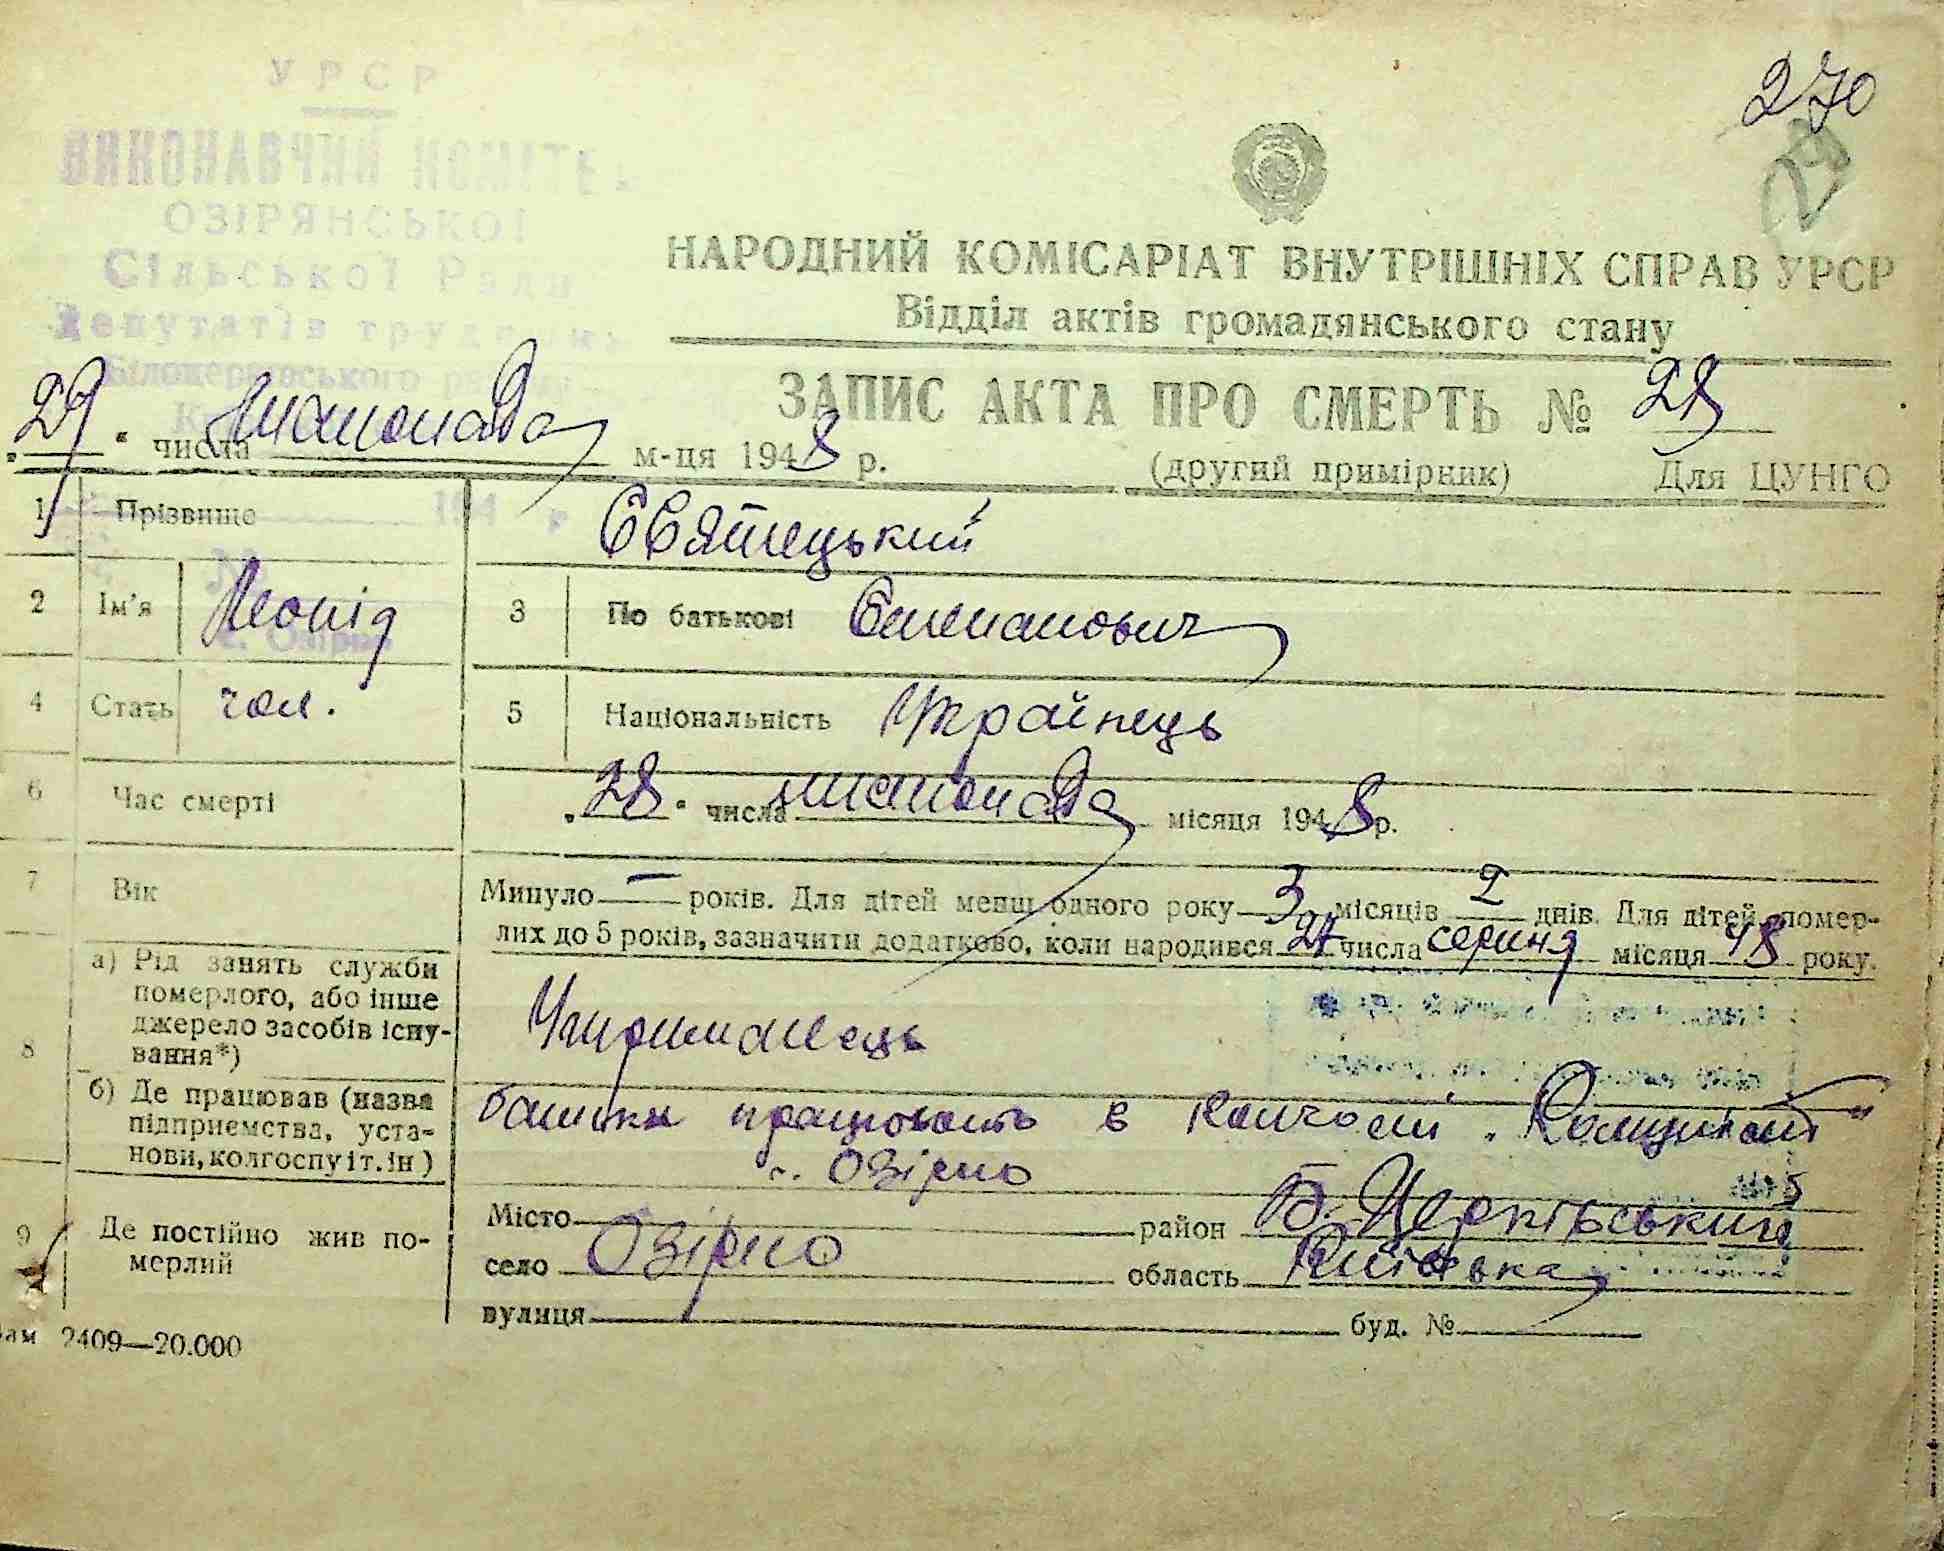 УРСР
ВИКОНАВЧИЙ КОМІТЕТ
ОЗІРЯНСЬКОЇ
Сільської Ради
Депутатів трудящих
Білоцерківського району
270
29
НАРОДНИЙ КОМІСАРІАТ ВНУТРІШНІХ СПРАВ УРСР
Відділ актів громадянського стану
ЗАПИС АКТА ПРО СМЕРТЬ № 28
„29“ числа листопада м-ця 1948 р. (другий примірник) Для ЦУНГО
1 Прізвище Святецький
194 р
2 Ім'я Леонід 3 По батькові Степанович
с. Озірно
4 Стать чол. 5 Національність Українець
6 Час смерті „28“ числа листопада місяця 1948 р.
7 Вік Минуло — років. Для дітей менш одного року 3 місяців 2 днів. Для дітей, помер-
лих до 5 років, зазначити додатково, коли народився 27 числа серпня місяця 48 року.
8 а) Рід занять служби
померлого, або інше
джерело засобів існу-
вання*) Утриманець
б) Де працював (назва
підприємства, уста-
нови, колгоспу і т. ін)
батьки працюють в колгоспі „
с. Озірно
9 Де постійно жив по-
мерлий
Місто район Б. Церківський
село Озірно область Київська
вулиця буд. №
Зам 2409—20.000